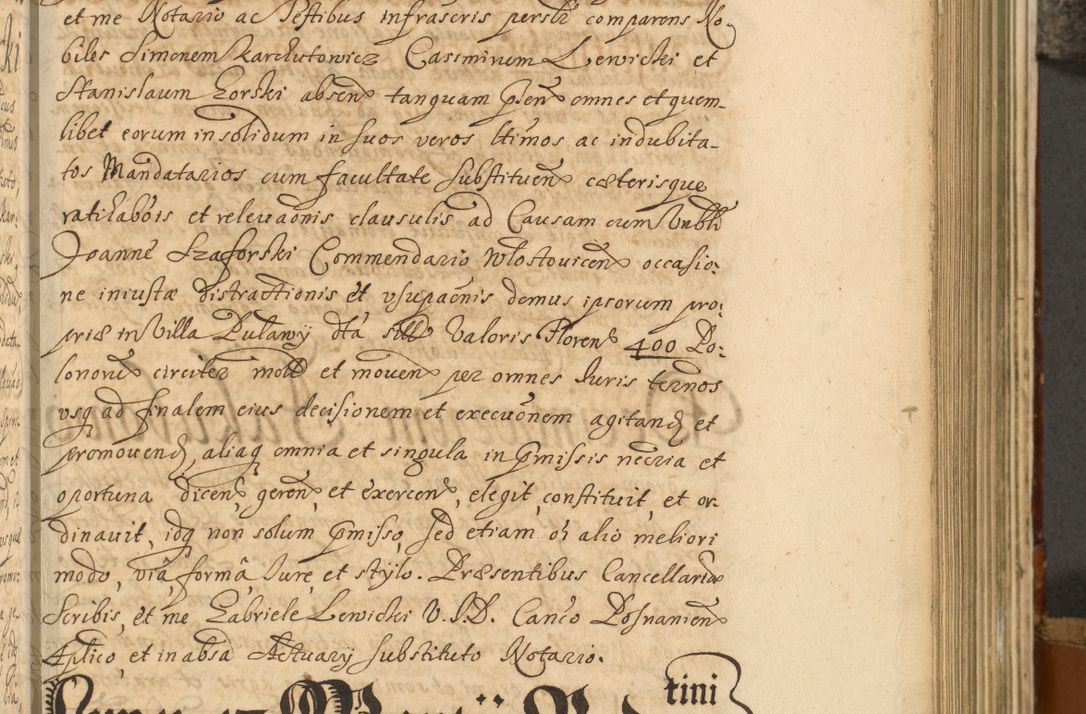 et me Notario ac Testibus infrascris persolr comparens No-
biles Simonem Karchutowicz Cassmirum Lewicki et
Stanislaum Gorski absen tanquam pnen omnes et quem-
libet eorum in solidum in suos veros ltimos ac indubita-
tos Mandatarios cum facultate substituen cæterisque
ratihabois et relevaonis clausulis ad Causam cum Vnbli
Joanne Szaforski Commendario Wlostovicen occasio-
ne iniustæ distractionis et vsupaonis domus ipsorum pro-
priæ in Villa Pulawy dta sitt Valoris Floren 400 Po-
lonorum circiter mott et moven per omnes Iuris terminos
vsq ad finalem eius decisionem et executionem agitand et
promovend, aliaq omnia et singula in pmissis necria et
oportuna dicen, geren, et exercen, elegit, constituit, et or-
dinavit, idq non solum pmisso, sed etiam oi alio meliori
modo, viâ, formâ, Iure, et stylo. Præsentibus Cancellariæ
Scribis, et me Gabriele Lewicki V.I.D. Canco Posnanien
Aplico, et in absa Actuarij substituto Notario.
tini